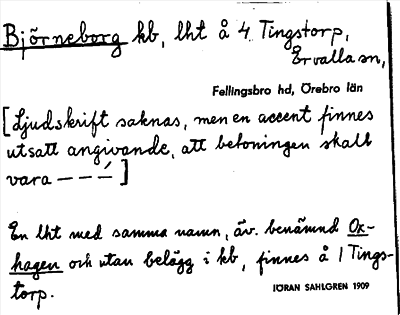 Björneborg kb, lht å 4 Tingstorp,
Ervalla sn,
Fellingsbro hd, Örebro län
[Ljudskrift saknas, men en accent finnes
utsatt angivande, att betoningen skall
vara — — —́ ]
En lht med samma namn, äv. benämnd Ox-
hagen och utan belägg i kb, finnes å 1 Tings-
torp.
JÖRAN SAHLGREN 1909